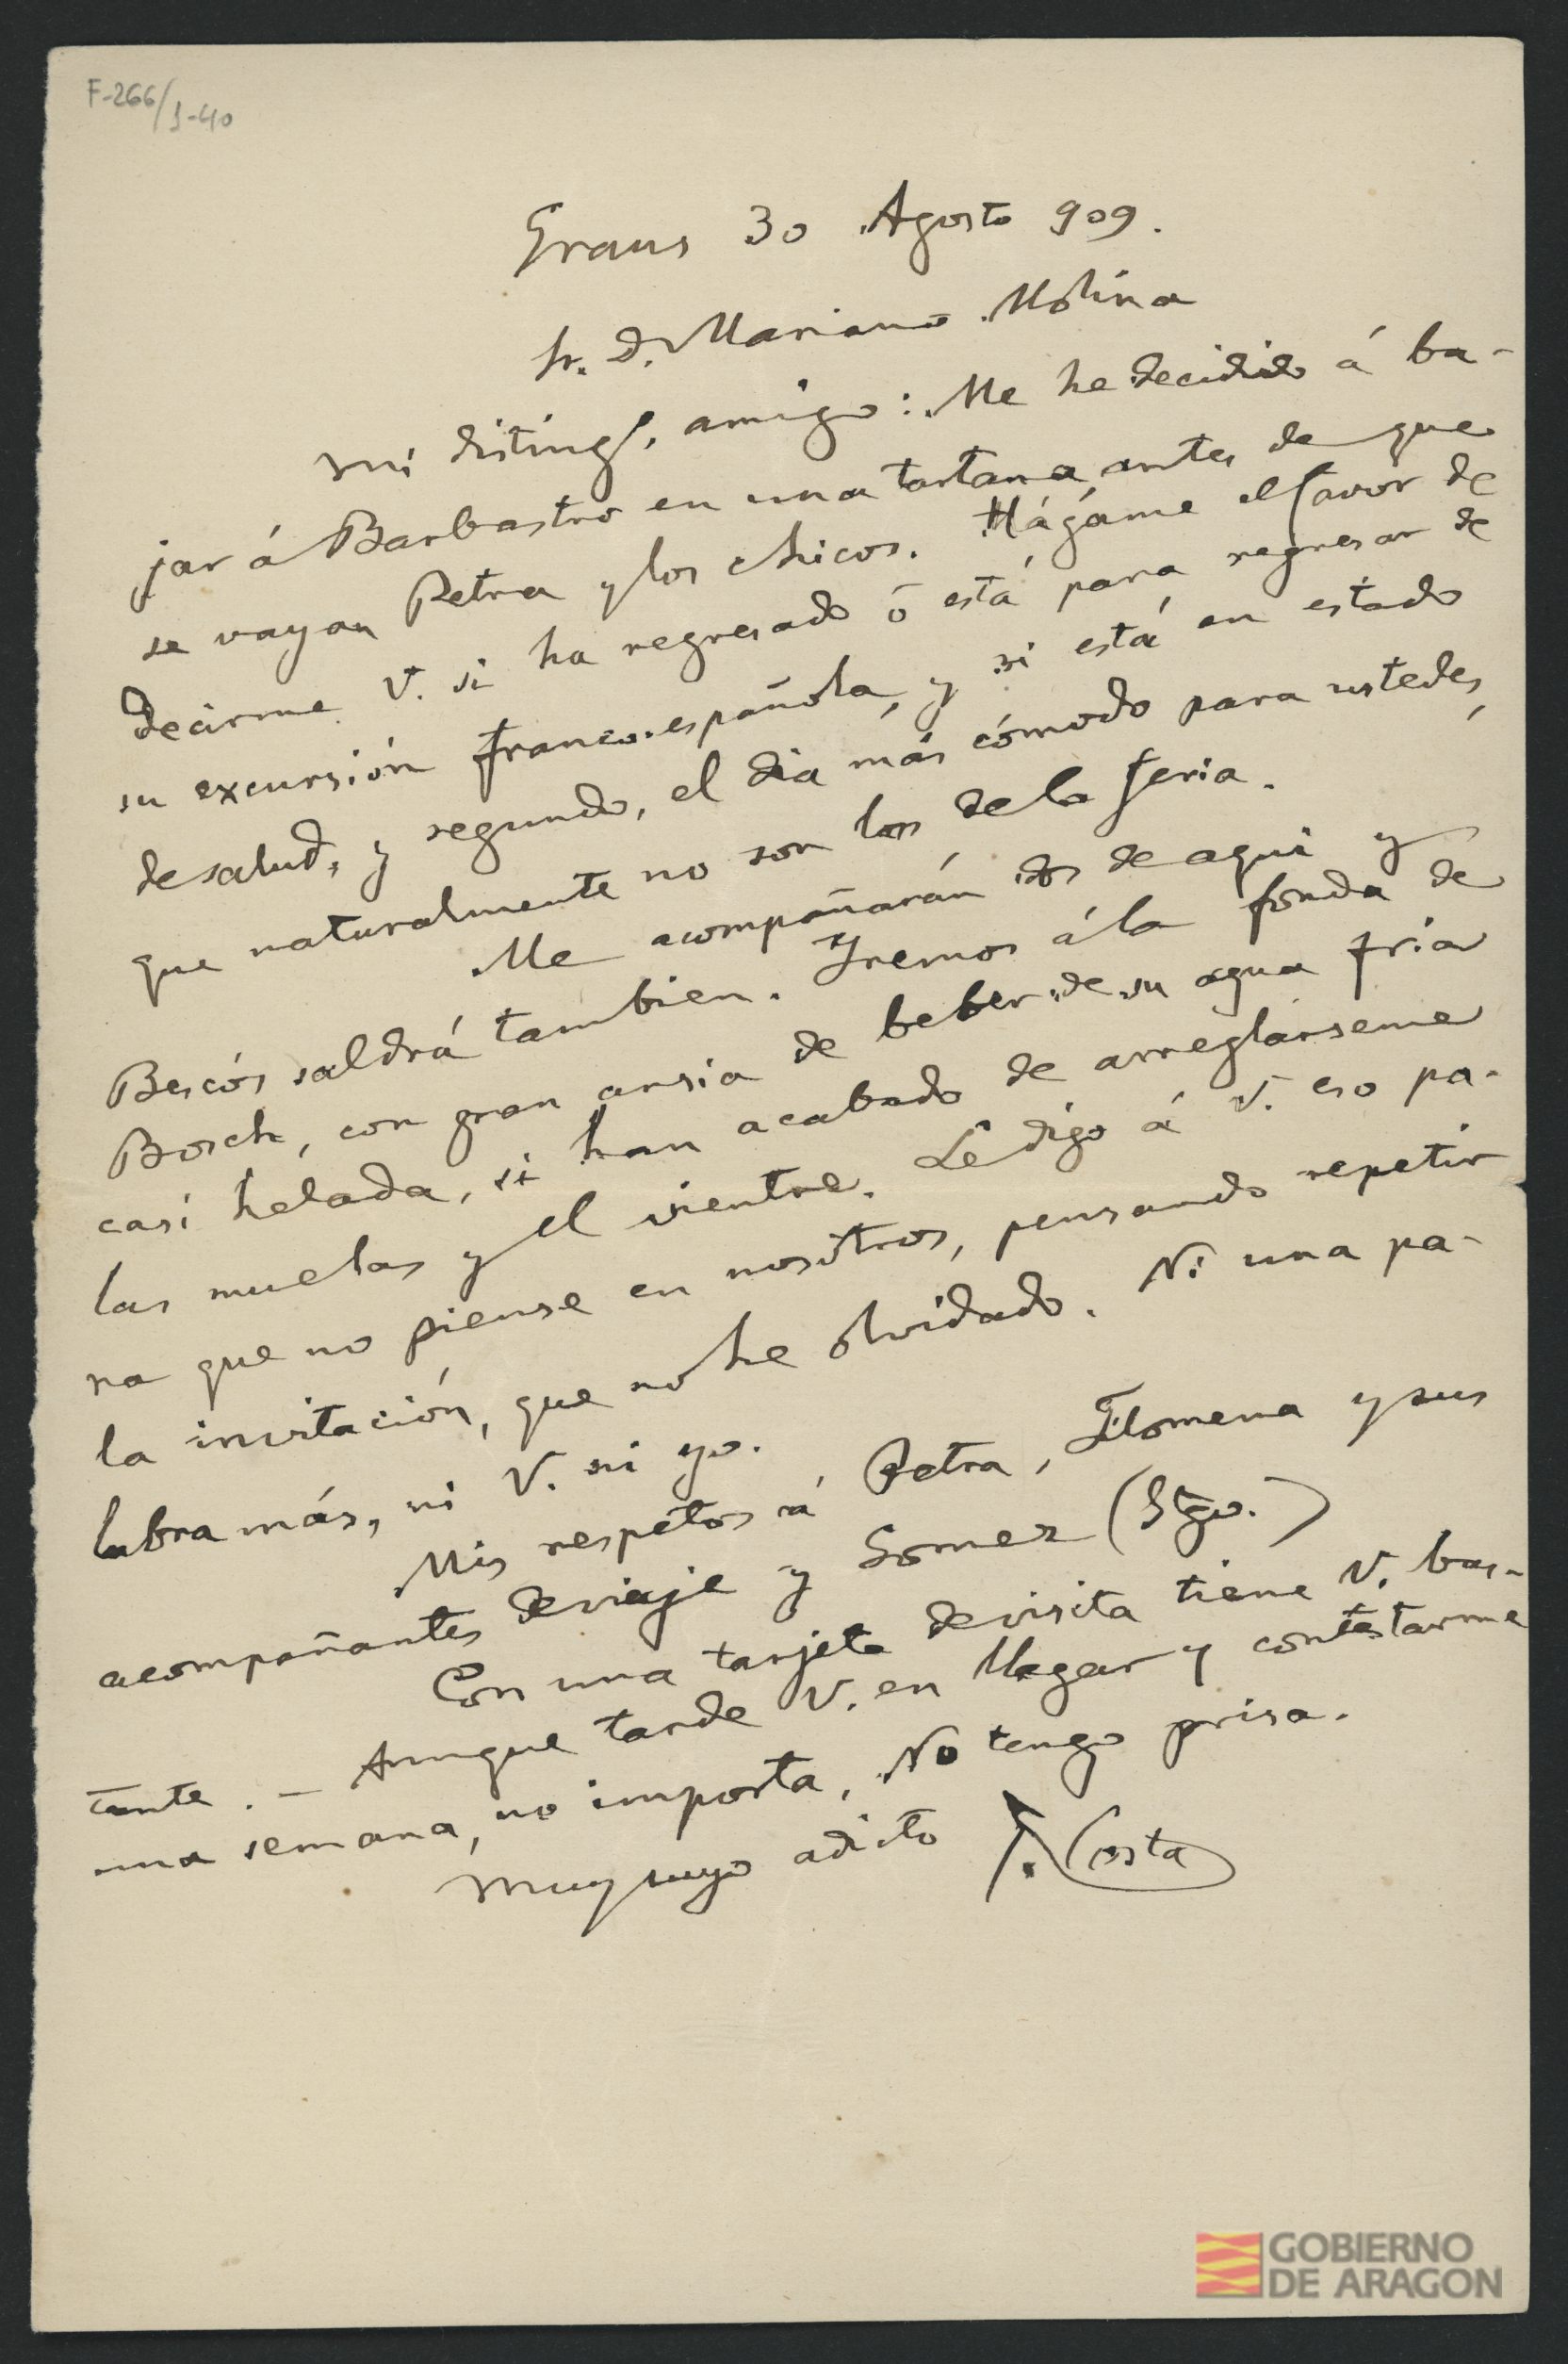 F-266/1-40
Graus 30 Agosto 909.
Sr. D. Mariano Molina
Mi disting/. amigo: Me he decidido á ba-
jar á Barbastro en una tartana antes de que
se vayan Petra y los chicos. Hágame el favor de
decirme V. si ha regresado ó está para regresar de
su excursión franco-española, y si está en estado
de salud, y segundo, el dia más cómodo para ustedes,
que naturalmente no son los de la feria.
Me acompañarán dos de aqui y
Bescós saldrá tambien. Iremos á la fonda de
Bosch, con gran ansia de beber de su agua fria
casi helada, si han acabado de arreglárseme
las muelas y el vientre. Le digo á V. eso pa-
ra que no piense en nosotros, pensando repetir
la invitación, que no he olvidado. Ni una pa-
labra más, ni V. ni yo.
Mis respetos á Petra, Filomena y sus
acompañantes de viaje y Gomez (Stgo.)
Con una tarjeta de visita tiene V. bas-
tante. - Aunque tarde V. en llegar y contestarme
una semana, no importa. No tengo prisa.
Muy suyo adicto J. Costa
GOBIERNO
DE ARAGON